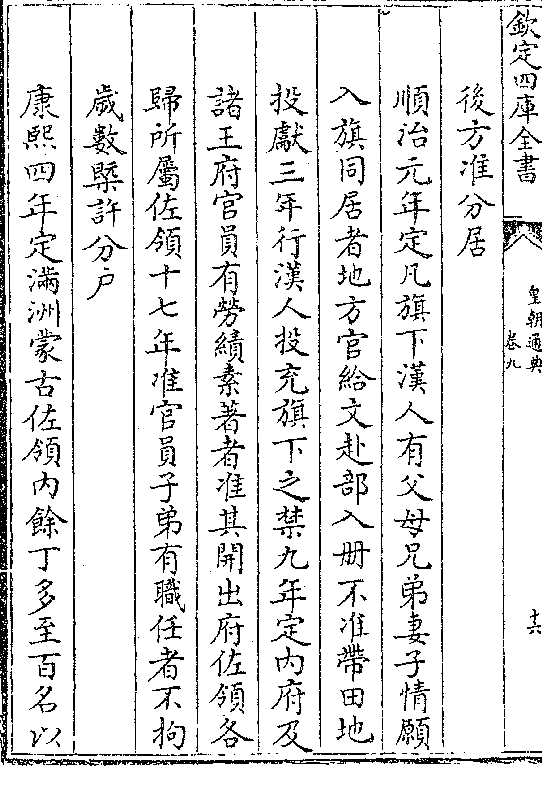 欽定四庫全書
皇朝通典
卷九
十六
後方准分居
順治元年定凡旗下漢人有父母兄弟妻子情願
入旗同居者地方官給文赴部入册不准帶田地
投獻三年行漢人投充旗下之禁九年定内府及
諸王府官員有勞績素著者准其開出府佐領各
歸所屬佐領十七年准官員子弟有職任者不拘
歲數槩許分户
康熙四年定滿洲蒙古佐領内餘丁多至百名以